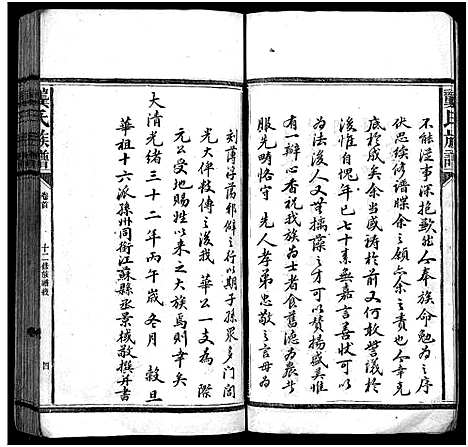 龔氏族譜
不能從事深抱歉然今奉族命為之序
伏思續修譜牒余之領余之責也今幸克
底於成矣余當盛禱於前又何敢譽議於
後惟自愧年已七十素無嘉言善狀可以
為法又無摛藻之才可以贊揚盛美惟
有一瓣心香祝我族為士者食舊德為農者
服先疇恪守先人孝弟忠敬之言毋為
刻薄浮蕩邪僻之行以期子孫眾多門閭
光大俾枝傳之後我華公一支為際
元公受地賜姓以來之大族焉則幸矣
大清光緒三十二年丙午歲冬月穀旦
華祖十六派孫州同銜江蘇縣丞景梫敬撰并書
龔氏族譜
卷首
十二修族譜敘
四